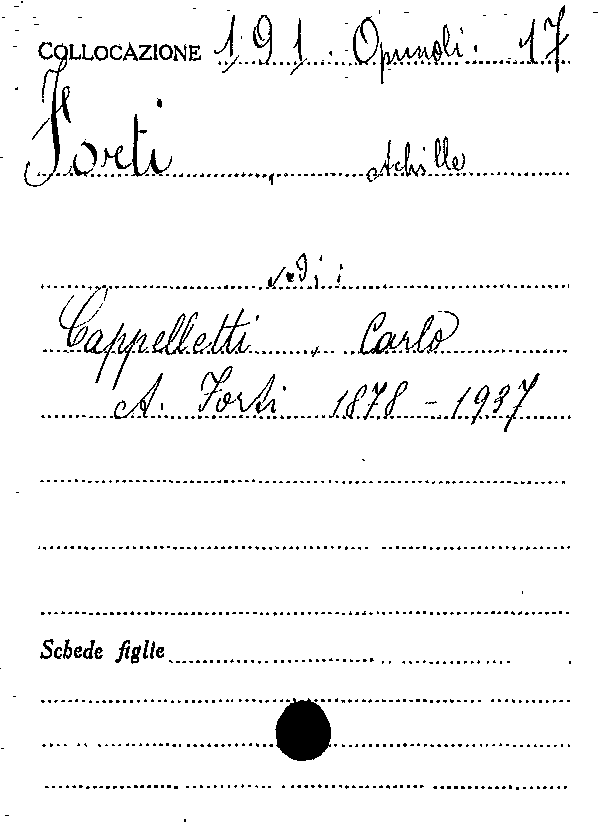 COLLOCAZIONE 191. Opuscoli. 17
Forti, Achille
vedi:
Cappelletti, Carlo
A. Forti 1878-1937
Schede figlie